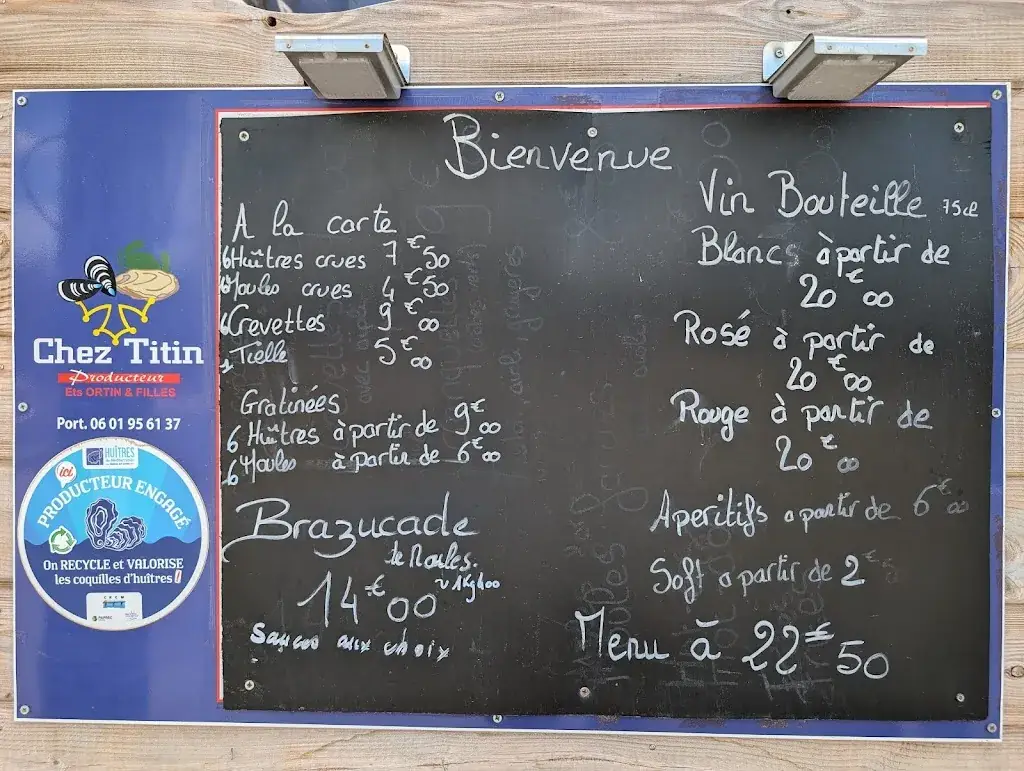 Bienvenue
A la carte
6 Huîtres crues 7€50
6 Moules crues 4€50
6 Crevettes 9€00
1 Tielle 5€00
Gratinées
6 Huîtres à partir de 9€00
6 Moules à partir de 6€00
Brazucade
de Moules.
~1Kg400
14€00
Sauces aux choix
Vin Bouteille 75cl
Blancs à partir de
20€00
Rosé à partir de
20€00
Rouge à partir de
20€00
Aperitifs a partir de 6€00
Soft a partir de 2€5
Menu à 22€50
Chez Titin
Producteur
Ets ORTIN & FILLES
Port. 06 01 95 61 37
HUÎTRES
ici
PRODUCTEUR ENGAGÉ
On RECYCLE et VALORISE
les coquilles d'huîtres !
CRCM